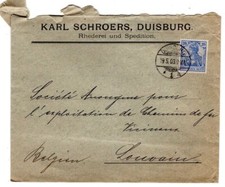 KARL SCHROERS, DUISBURG.
Rhederei und Spedition.
Société Anonyme pour
l'exploitation de Chemins de fer
Vicinaux
Belgien Louvain